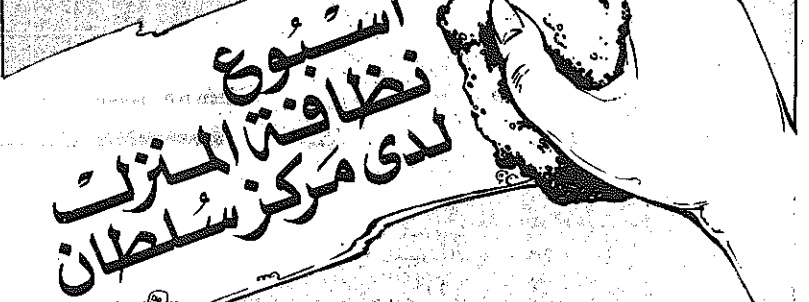 اسْبُوع
نظافة المنزل
لدى مَركز سُلطان